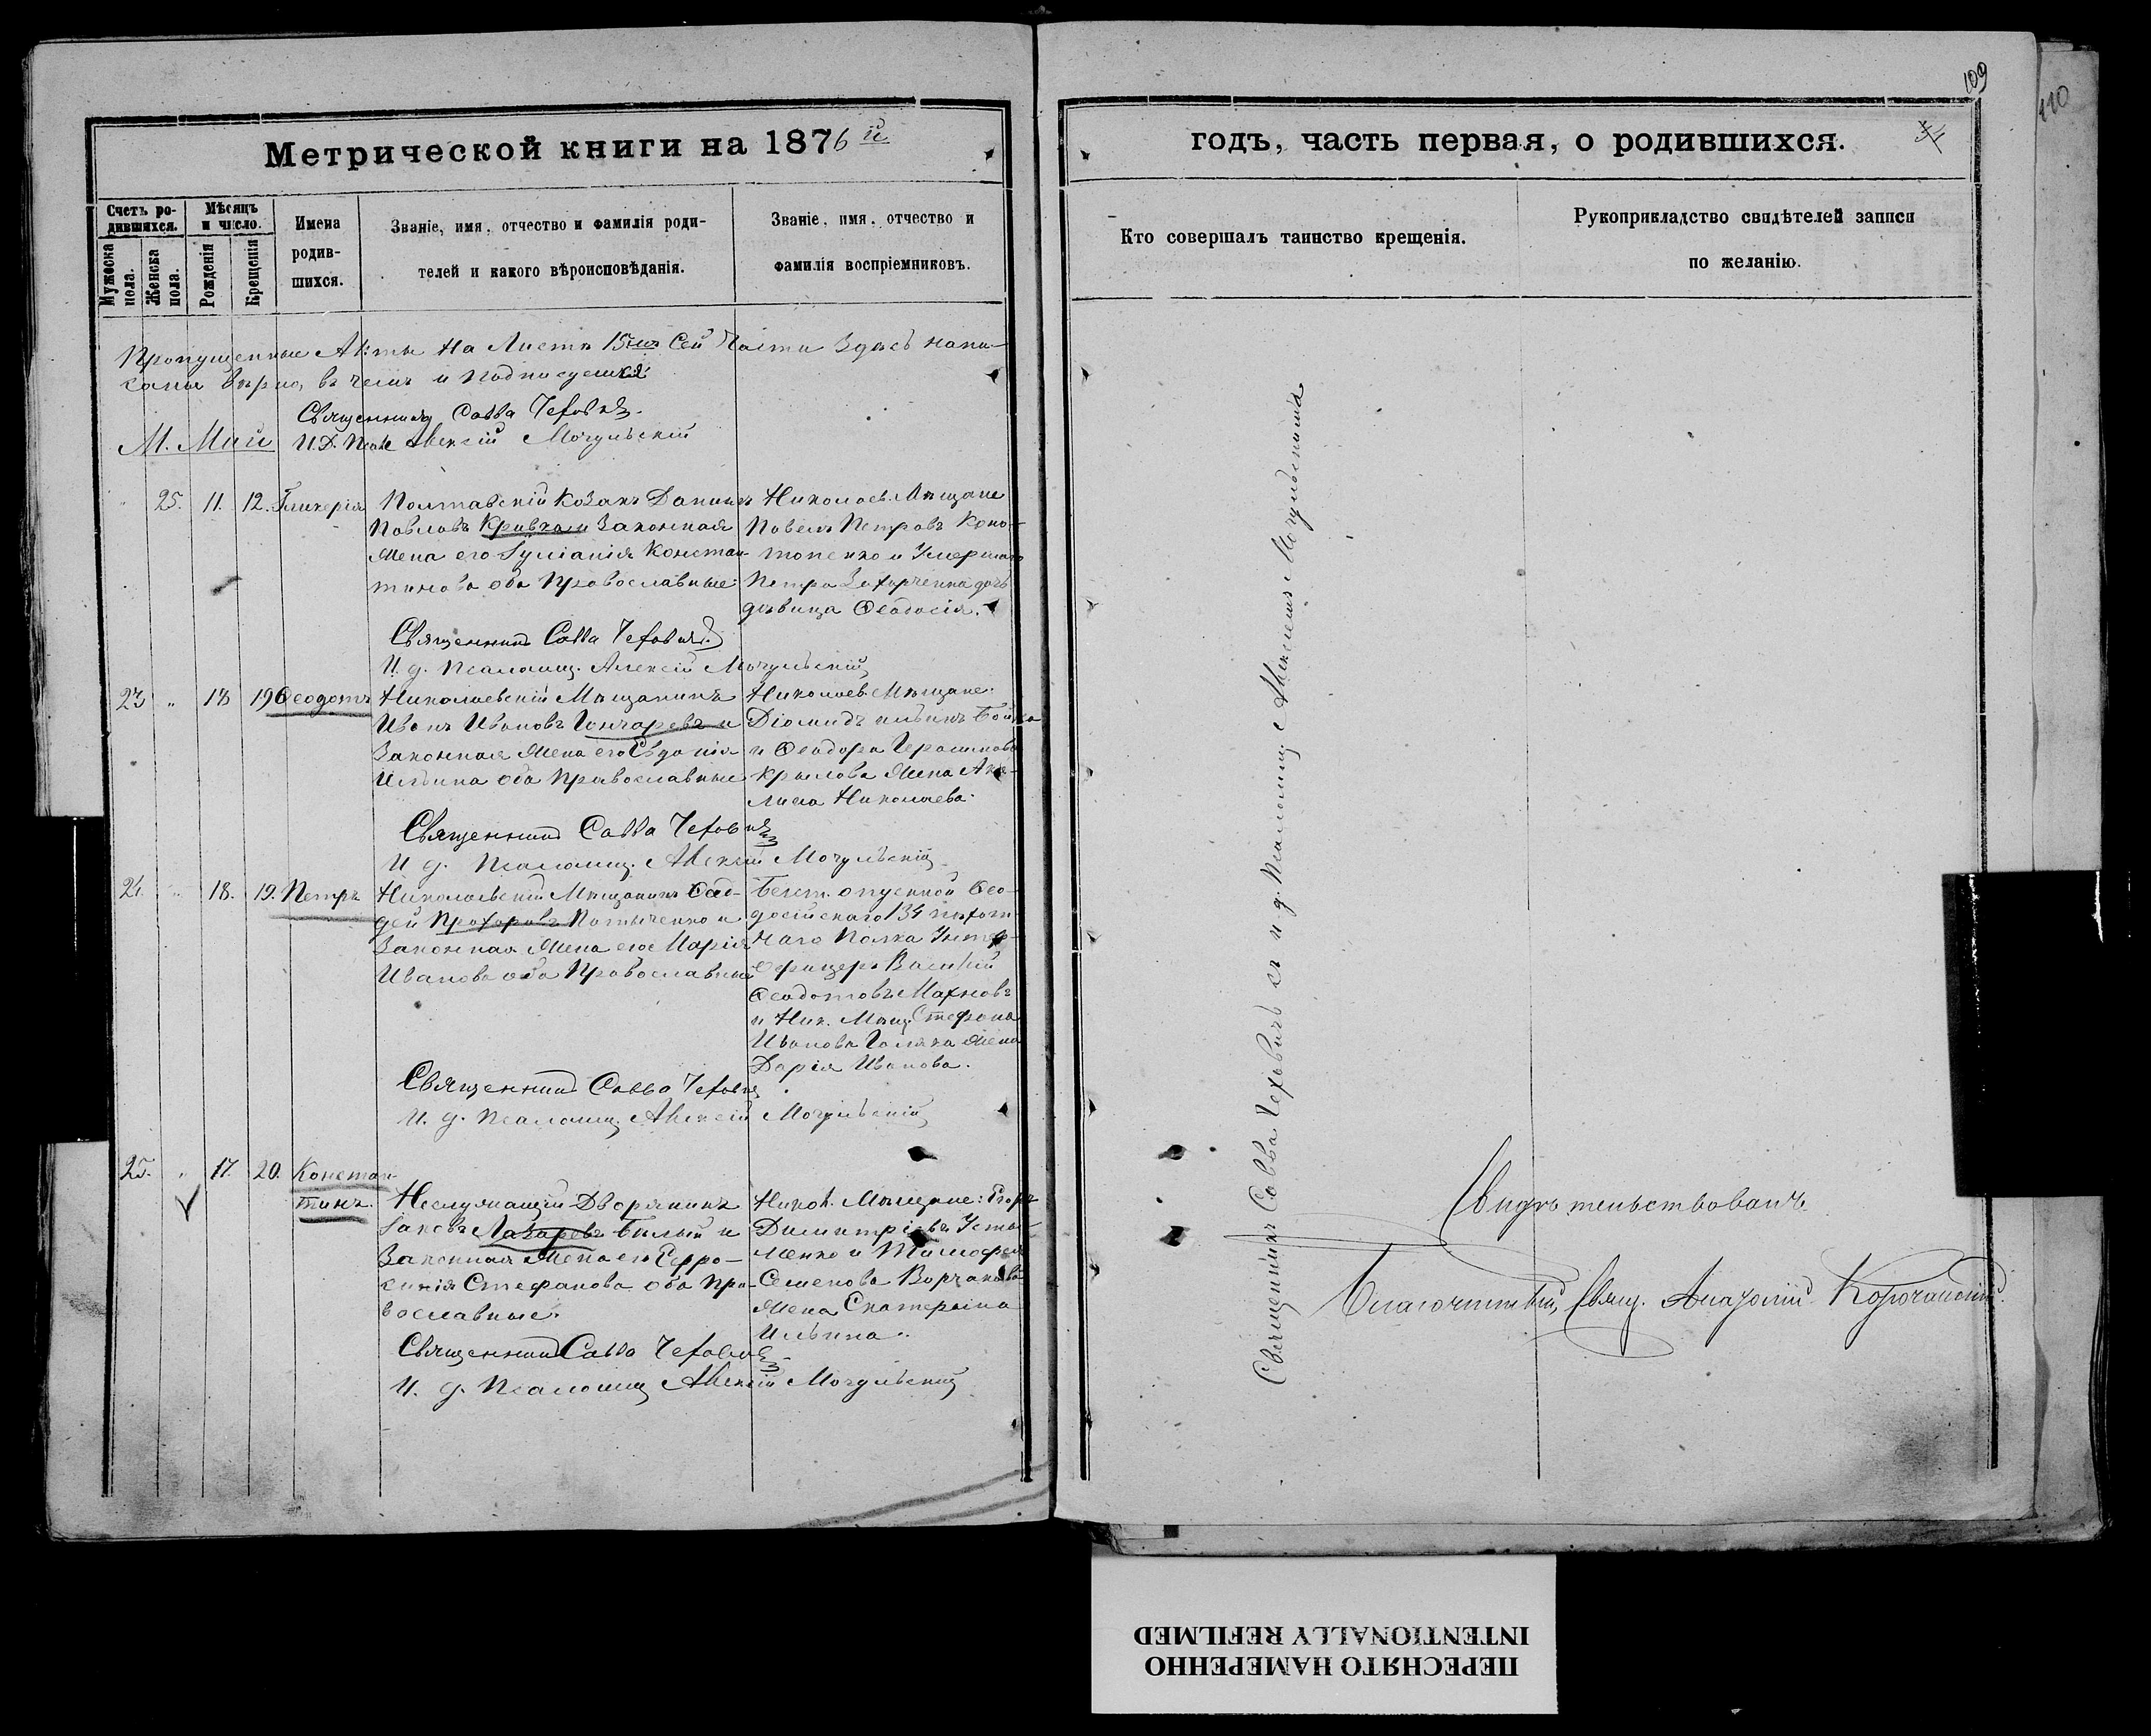 109
110
Метрической книги на 1876 й
годъ, часть первая, о родившихся.
Счетъ ро-
дившихся.
Мужеска пола.
Женска пола.
Мѣсяцъ
и число.
Рожденія
Крещенія
Имена
родив-
шихся.
Званіе, имя, отчество и фамилія роди-
телей и какого вѣроисповѣданія.
Званіе, имя, отчество и
фамилія воспріемниковъ.
Кто совершалъ таинство крещенія.
Рукоприкладство свидѣтелей записи
по желанію.
Пропущенные Акты На Листѣ 15 Сей Части Здѣсь напи-
саны вѣрно, въ чемъ и подписуемся
Священникъ Савва Чеховичъ
М. Май
И. Д. Псал. Алексій Мочульскій
25. 11. 12. Гликерія
Полтавскій Козакъ Даниилъ
Павловъ Кравчен Законная
Жена его Іуліанія Констан-
тинова оба Православные.
Николаев. Мѣщане
Павелъ Петровъ Коно-
топенко и Умершаго
Петра Захарченка дочь
дѣвица Ѳеодосія.
Священникъ Савва Чеховичъ
И. д. Псаломщ. Алексій Мочульскій
23 " 18 19 Ѳеодотъ
Николаевскій Мѣщанинъ
Иванъ Ивановъ Гончаревъ и
Законная Жена его Евдокія
Ильина оба Православные
Николаев. Мѣщане:
Діомидъ Ильинъ Бойко
и Ѳеодора Герасимова
Крылова Жена Аку-
лина Николаева.
Священникъ Савва Чеховичъ
И. д. Псаломщ. Алексій Мочульскій
24. " 18. 19. Петръ
Николаевскій Мѣщанинъ Ѳад-
дей Прохоровъ и
Законная Жена его Марія
Иванова оба Православные
Безср. отпускной Ѳео-
досійскаго 134 пѣхот-
наго Полка Унтер-
Офицеръ Василій
Ѳеодотовъ Махновъ
и Ник. Мѣщ. Стефана
Иванова Голяка Жена
Дарія Иванова.
Священникъ Савва Чеховичъ
И. д. Псаломщ. Алексій Мочульскій
25. " 17. 20. Констан-
тинъ.
Неслужащій Дворянинъ
Іаковъ Лазаревъ Билый и
Законная Жена его Евфро-
синія Стефанова оба Пра-
вославные.
Никол. Мѣщане: Егоръ
Димитріевъ Усти-
менко и Тимофея
Семенова Ворчакова
Жена Екатерина
Ильина.
Священникъ Савва Чеховичъ
И. д. Псаломщ. Алексій Мочульскій
Священникъ Савва Чеховичъ съ и д Псаломщ. Алексіемъ Мочульскимъ
Свидѣтельствовалъ
Благочинный, Свящ.
ПЕРЕСНЯТО НАМЕРЕННО
INTENTIONALLY REFILMED